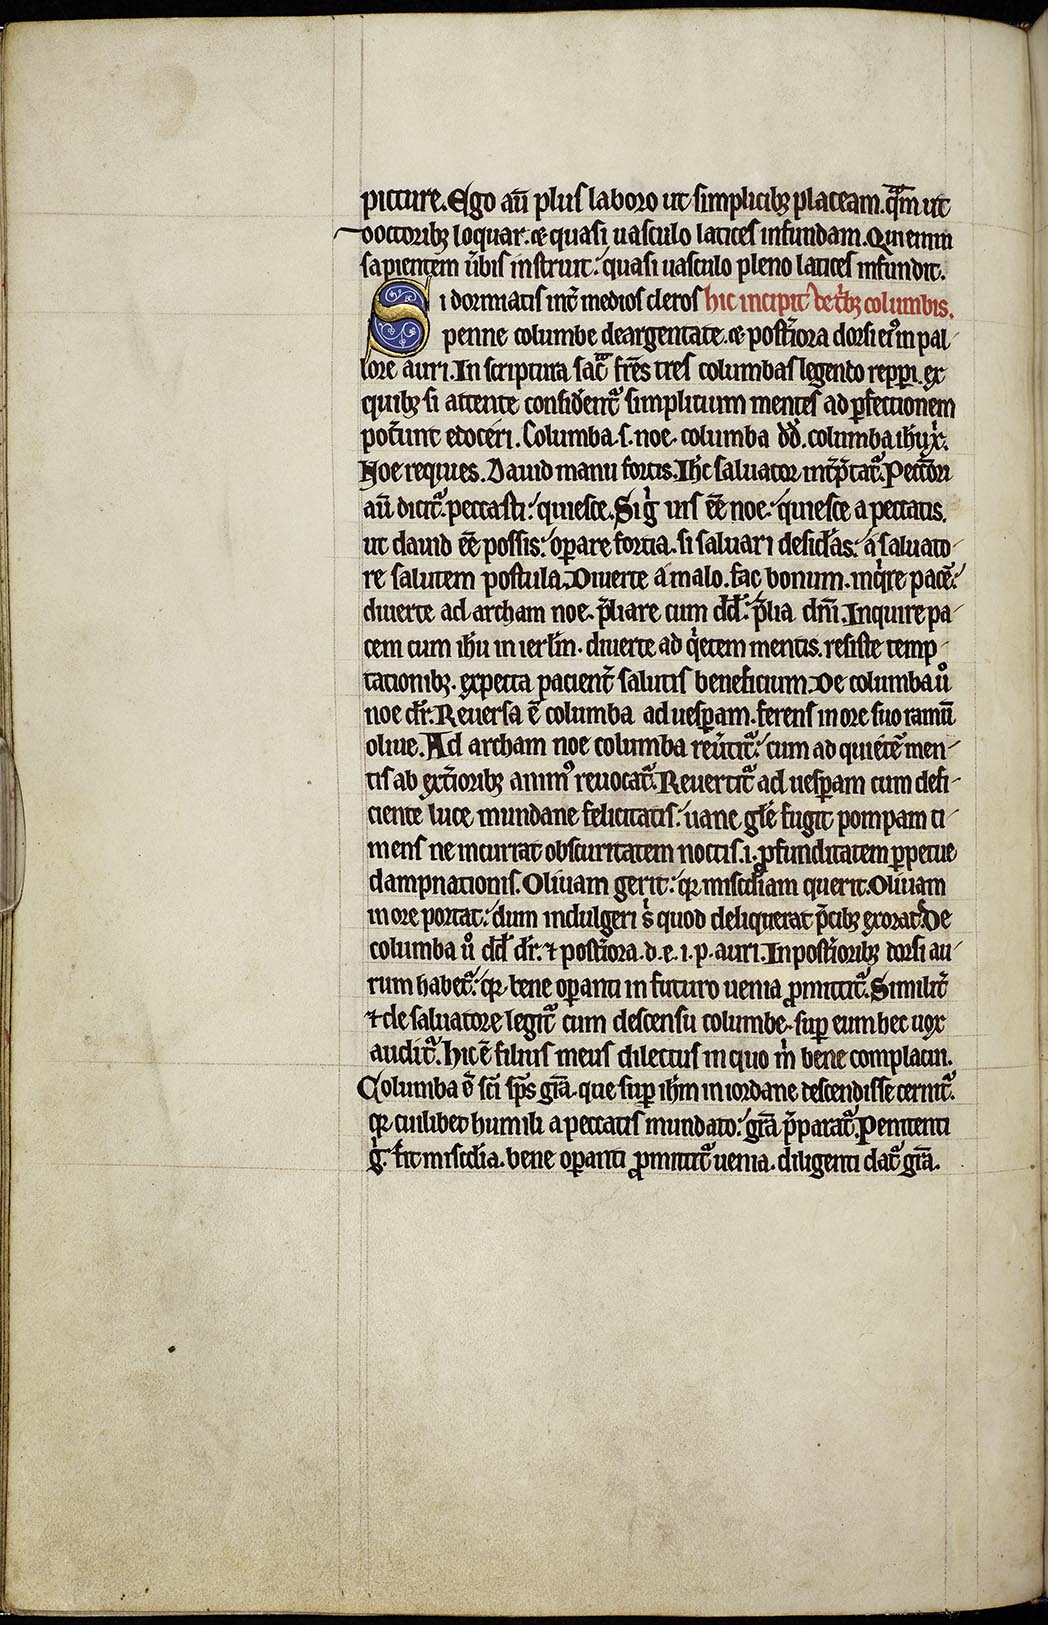 picture. Ego aū plus laboro ut simplicibꝫ placeam. q̄m ut
doctoribꝫ loquar. ⁊ quasi uasculo latices infundam. Qui enim
sapientem ūbis instruit: quasi uasculo pleno latices infundit.
Si dormiatis int̄ medios cleros hic incipit de tͥbꝫ columbis.
penne columbe deargentate. ⁊ post̄iora dorsi eiꝰ in pal
lore auri. In scriptura sac̄ᵃ fr̄es tres columbas legendo repperi. ex
quibꝫ si attente considerent̄ simplitium mentes ad ꝑfectionem
pot̄unt edoceri. Columba .s. noe. columba dd̄. columba ih̄u xͥ.
Noe requies. Dauid manu fortis. Ih̄c saluator int̄p̄tat̄. Peccatori
aū dicit̄. peccasti: quiesce. Si gͥ uis ēe noe: quiesce a peccatis.
ut dauid ēe possis: oꝑare fortia. si saluari desid̄as: a saluato
re salutem postula. Diuerte a malo. fac bonum. inqͥre pacē:
diuerte ad archam noe. p̄liare cum dd̄: p̄lia dn̄i. Inquire pa
cem cum ih̄u in ierl̄m. diuerte ad qͥetem mentis. resiste temp
tationibꝫ. expecta pacient̄ salutis beneficium. De columba ů
noe dr̄. Reuersa ē columba ad uesꝑam. ferens in ore suo ramū
oliue. Ad archam noe columba reūtit̄: cum ad quietē men
tis ab ext̄ioribꝫ animꝰ reuocat̄. Reuertit̄ ad uesꝑam cum defi
ciente luce mundane felicitatis: uane gl̄e fugit pompam ti
mens ne incurrat obscuritatem noctis .i. ꝓfunditatem ꝑpetue
dampnationis. Oliuam gerit: qꝛ miscd̄iam querit. Oliuam
in ore portat: dum indulgeri sͥ quod deliquerat p̄cibꝫ exorat. De
columba ů dd̄ dr̄. ⁊ post̄iora .d. e. i. p. auri. In post̄ioribꝫ dorsi au
rum habet̄: qꝛ bene oꝑanti in futuro uenia ꝓmittit̄. Similit̄
⁊ de saluatore legit̄ cum descensu columbe. suꝑ eum hec uox
audit̄. hic ē filius meus dilectus in quo mͥ bene complacui.
Columba ē sc̄i sp̄s gr̄a. que suꝑ ih̄m in iordane descendisse cernit̄.
qꝛ cuilibet humili a peccatis mundato: gr̄a p̄parat̄. Penitenti
gͥ. fit miscd̄ia. bene oꝑanti ꝓmittit̄ uenia. diligenti dat̄ gr̄a.